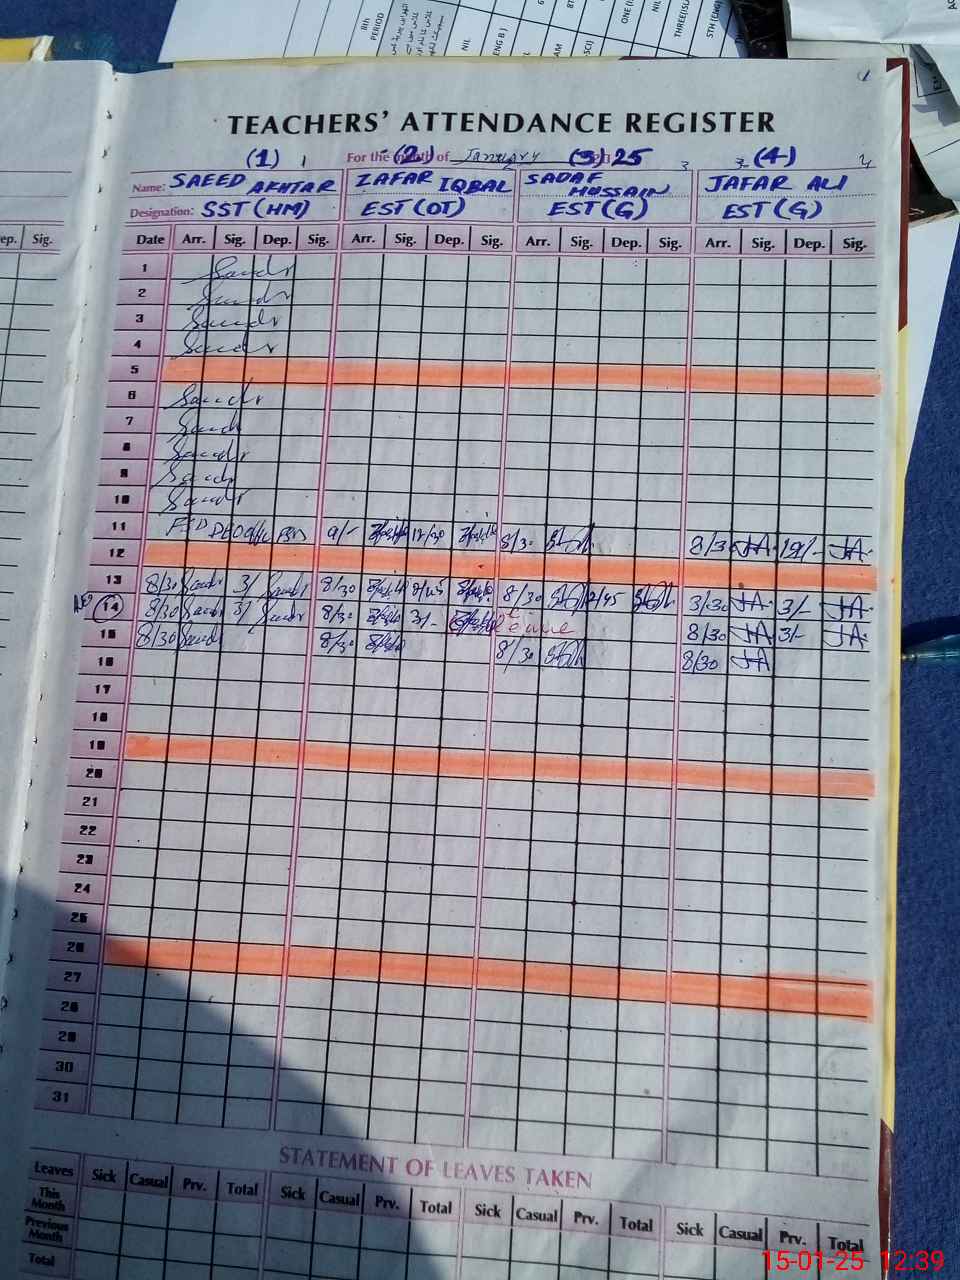 IIIth
PERIOD
NIL
ENG B )
AM
SCI)
ONE (I
NIL
THREE(ISL
5TH (ENG)
TEACHERS' ATTENDANCE REGISTER
(1) 1 For the month of January 25
(2) (3) 3 3- (4) 4
Name: SAEED AKHTAR ZAFAR IQBAL SADAF HUSSAIN JAFAR ALI
Designation: SST (HM) EST (OT) EST (G) EST (G)
ep. Sig. Date Arr. Sig. Dep. Sig. Arr. Sig. Dep. Sig. Arr. Sig. Dep. Sig. Arr. Sig. Dep. Sig.
1
2
3
4
5
6
7
8
9
10
11 9/- 12/30 8/30 8/30 JA 12/- JA
12
13 8/30 3/ 8/30 8/30 2/45 3/30 JA 3/- JA
14 8/30 3/ 8/30 3/- Leave 8/30 JA 3/- JA
15 8/30 8/30 8/30 8/30 JA
16
17
18
19
20
21
22
23
24
25
26
27
28
29
30
31
STATEMENT OF LEAVES TAKEN
Leaves Sick Casual Prv. Total Sick Casual Prv. Total Sick Casual Prv. Total Sick Casual Prv. Total
This Month
Previous Month
Total
15-01-25 12:39